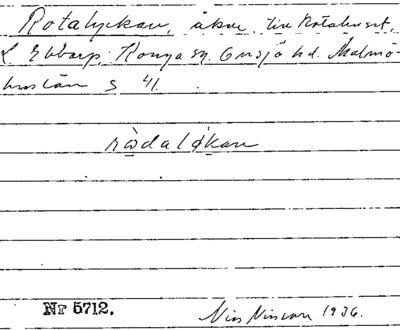 Rotalyckan, åker till Rotahuset,
L Ebbarp, Konga sn, Onsjö hd. Malmö-
hus län S 41.
rådaløkan
Nr 5712.
1936.